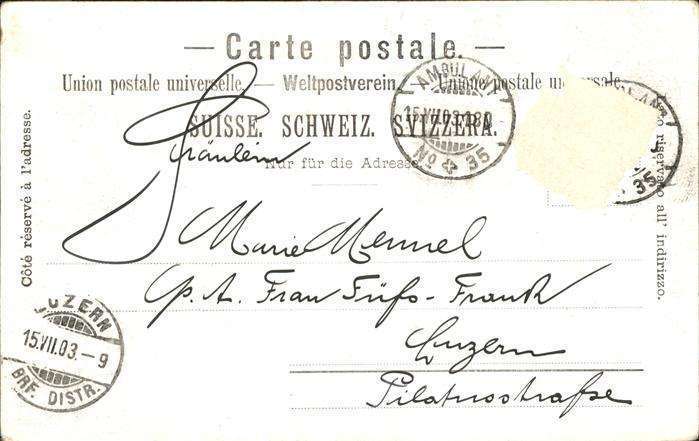 — Carte postale. —
Union postale universelle. — Weltpostverein. — Unione postale universale
SUISSE. SCHWEIZ. SVIZZERA.
Nur für die Adresse
Côté réservé à l'adresse.
o riservato all' indirizzo.
AMBULANT
15.VII.03
No 35
35
Fräulein
Marie Mennel
p. A. Frau Füfs-Frank
Luzern
Pilatusstraße
LUZERN
15.VII.03.–9
BRF. DISTR.